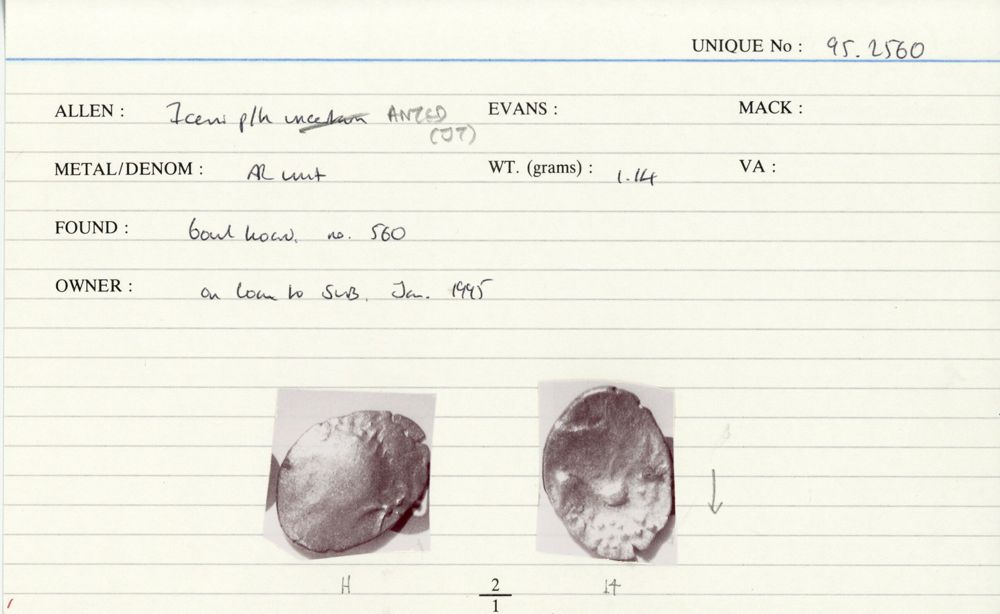 UNIQUE No : 95.2560
ALLEN : Iceni p/h uncertain ANTED EVANS : MACK :
(JT)
METAL/DENOM : AR unit WT. (grams) : 1.14 VA :
FOUND : bowl hoard, no. 560
OWNER : on loan to SUB, Jan. 1995
H 2 14
1